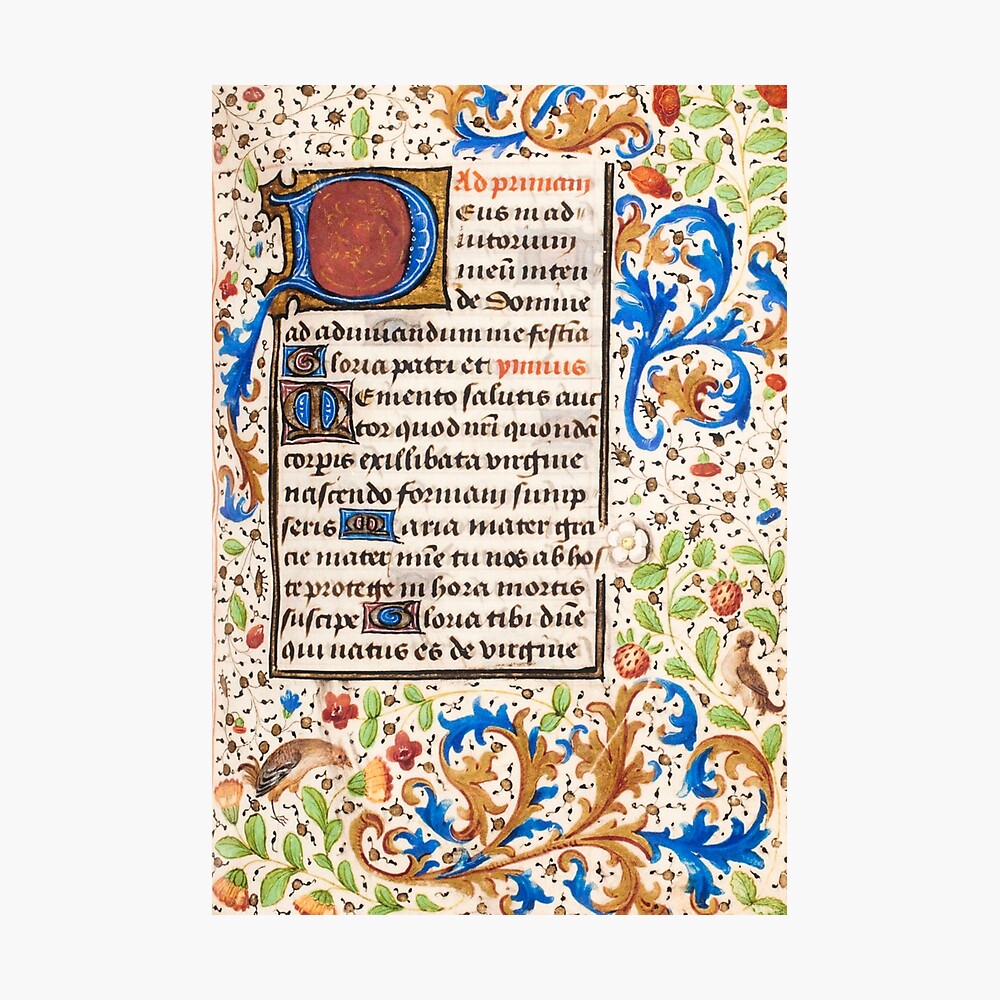 Ad primam
Deus in ad
iutorium
meū inten
de Domine
ad adiuuandum me festīa
Gloria patri et ymnus
Memento salutis auc
tor quod nrī quondā
corpis ex illibata virgine
nascendo formam sump
seris Maria mater gra
cie mater mīe tu nos ab hos
te protege in hora mortis
suscipe Gloria tibi dūe
qui natus es de virgine